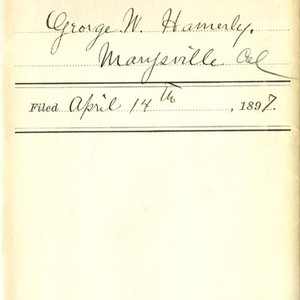 George W. Hamerly.
Marysville Cal
Filed April 14th, 1897.